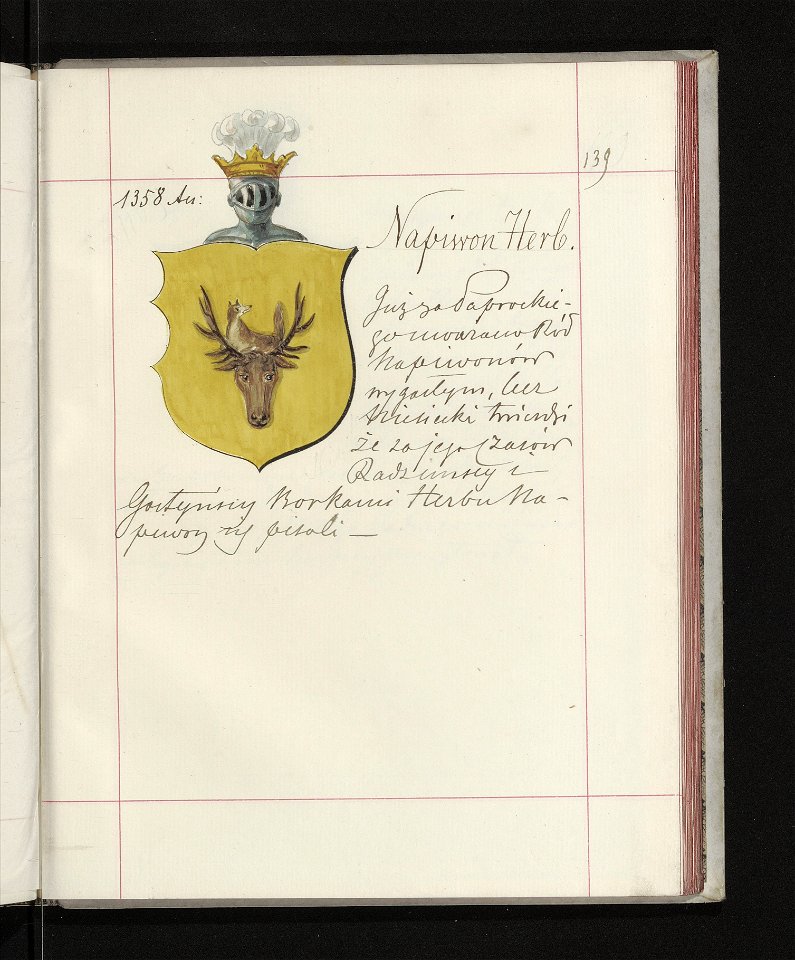 139
1358 An:
Napiwon Herb.
Już za Paprockie-
go uważano Ród
Napiwonów
wygasłym, lecz
Niesiecki twierdzi
że za jego czasów
Radzimscy i
Gostyńscy Borkami Herbu Na-
piwon się pisali —